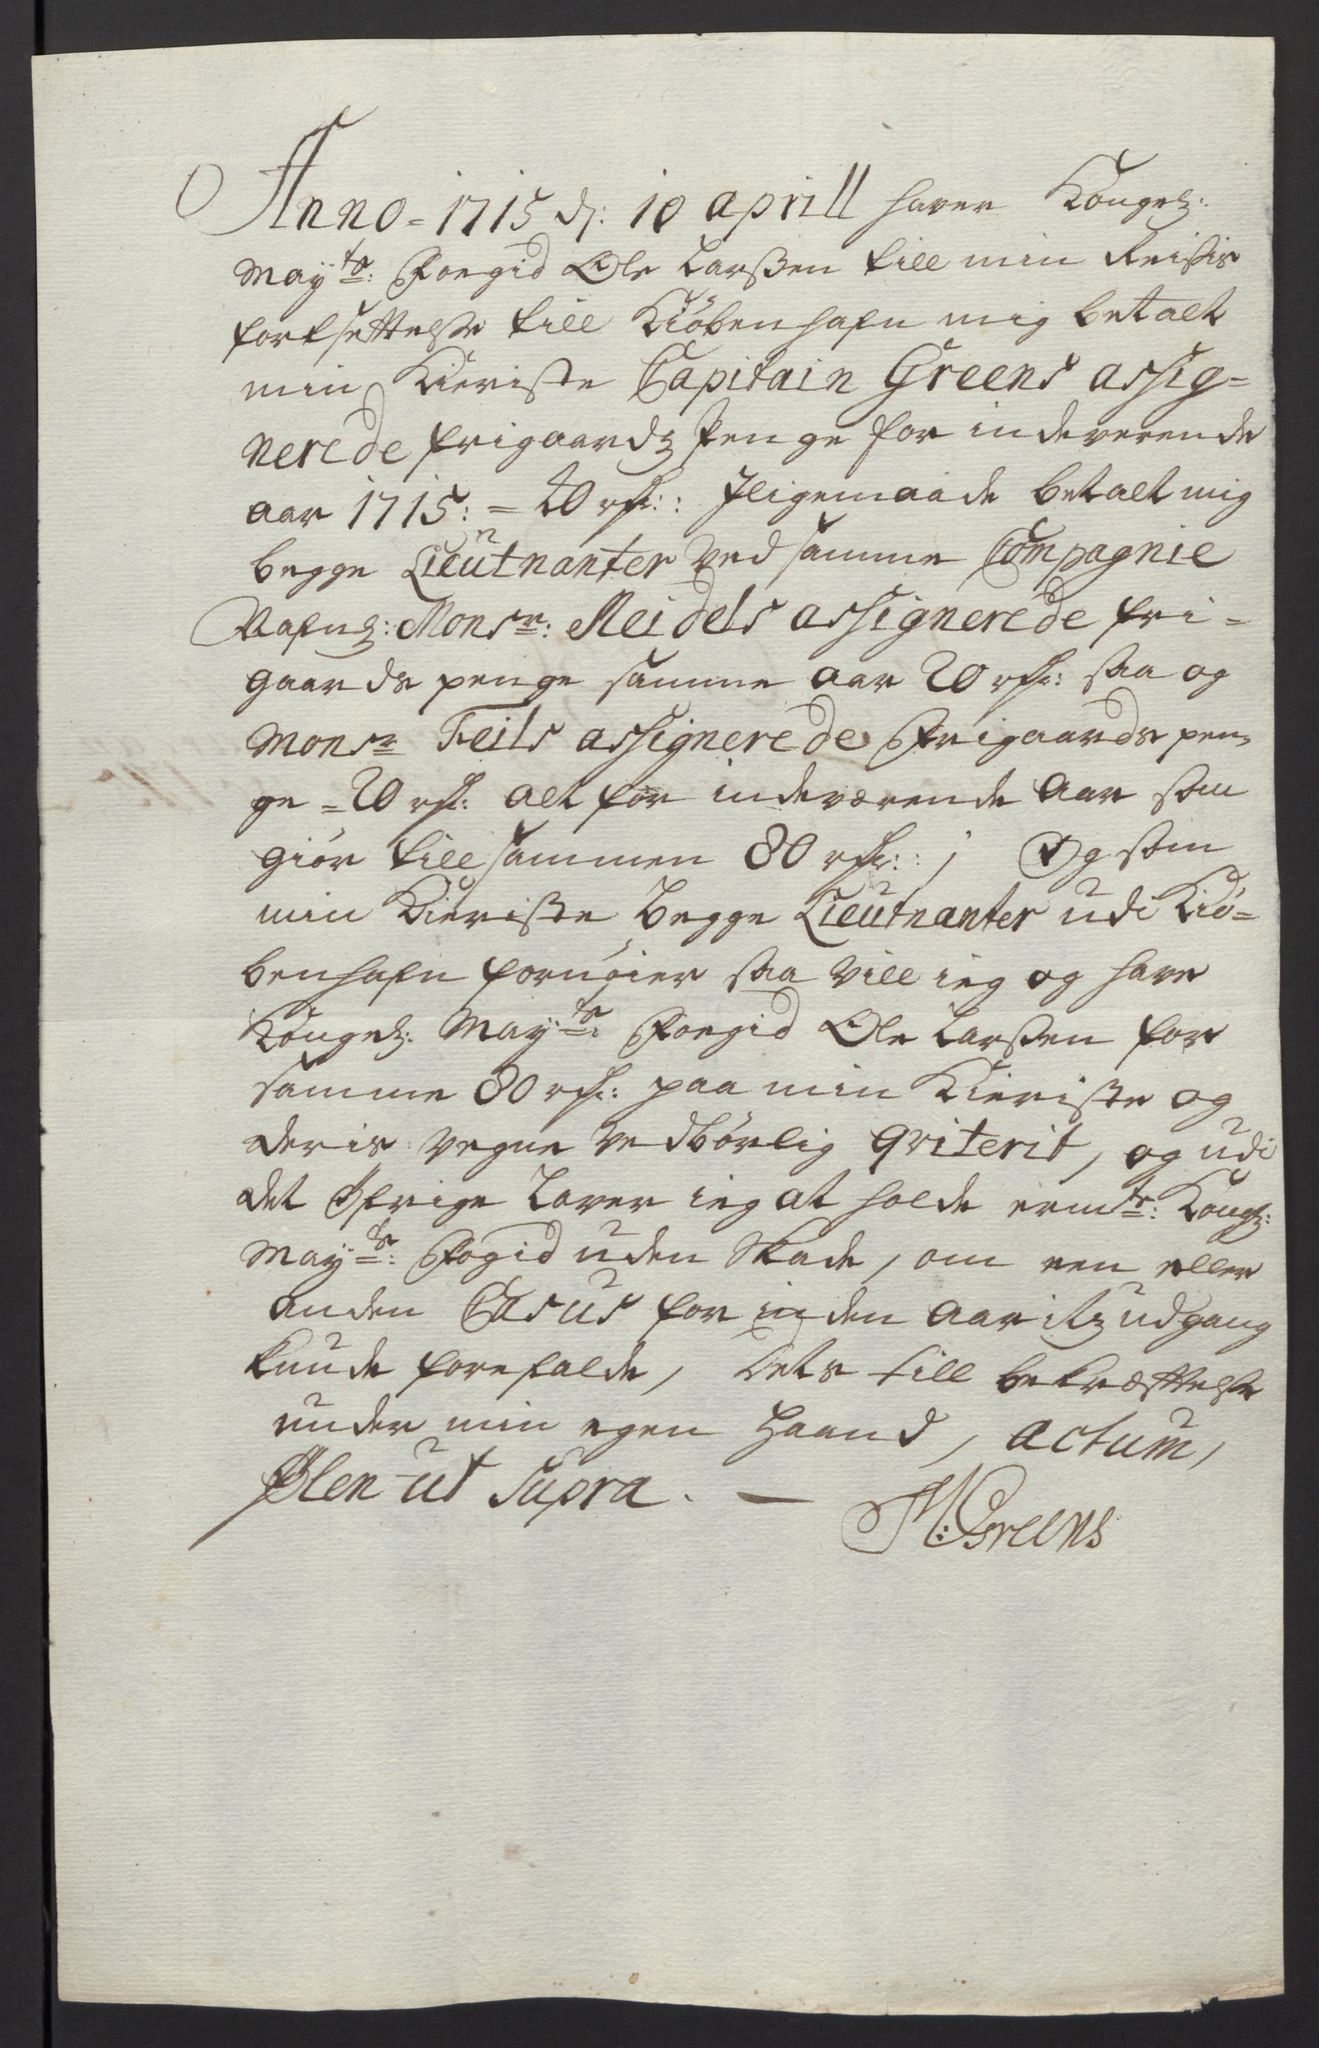 Anno = 1715 d: 10 aprill haver Kongel:
May:ts: Foegid Ole Larßen till min Reisis
fortsettelße till Kiöbenhafn mig betalt
min Kieriste Capitain Greens assig=
nerede frigaardz Penge for indeverende
aar 1715: = 40 rdr: Jligemaade betalt mig
begge Lieutnanter ved samme Compagnie
Nafnl: Monsr: Reidels assignerede fri=
gaards penge samme aar 20 rdr: saa og
Monsr Feils assignerede Frigaards pen=
ge = 20 rdr: alt for indeværende aar som
giör till sammen 80 rdr: ; Og som
min Kieriste begge Lieutnanter udi Kiö=
benhafn fornöier saa vill ieg og have
Kongel: May:ts: Foegid Ole Larßen for
samme 80 rdr: paa min Kieriste og
deris vegne vedbörlig qviterit, og udi
det öfrige lover ieg at holde ermte: Kongl:
May:ts: Fogid uden Skade, om een eller
anden Casus for inden aaritz udgang
kunde forefalde, Dets till bekræfftelße
under min egen Haand, actum,
ut Supra. —
M: Greens